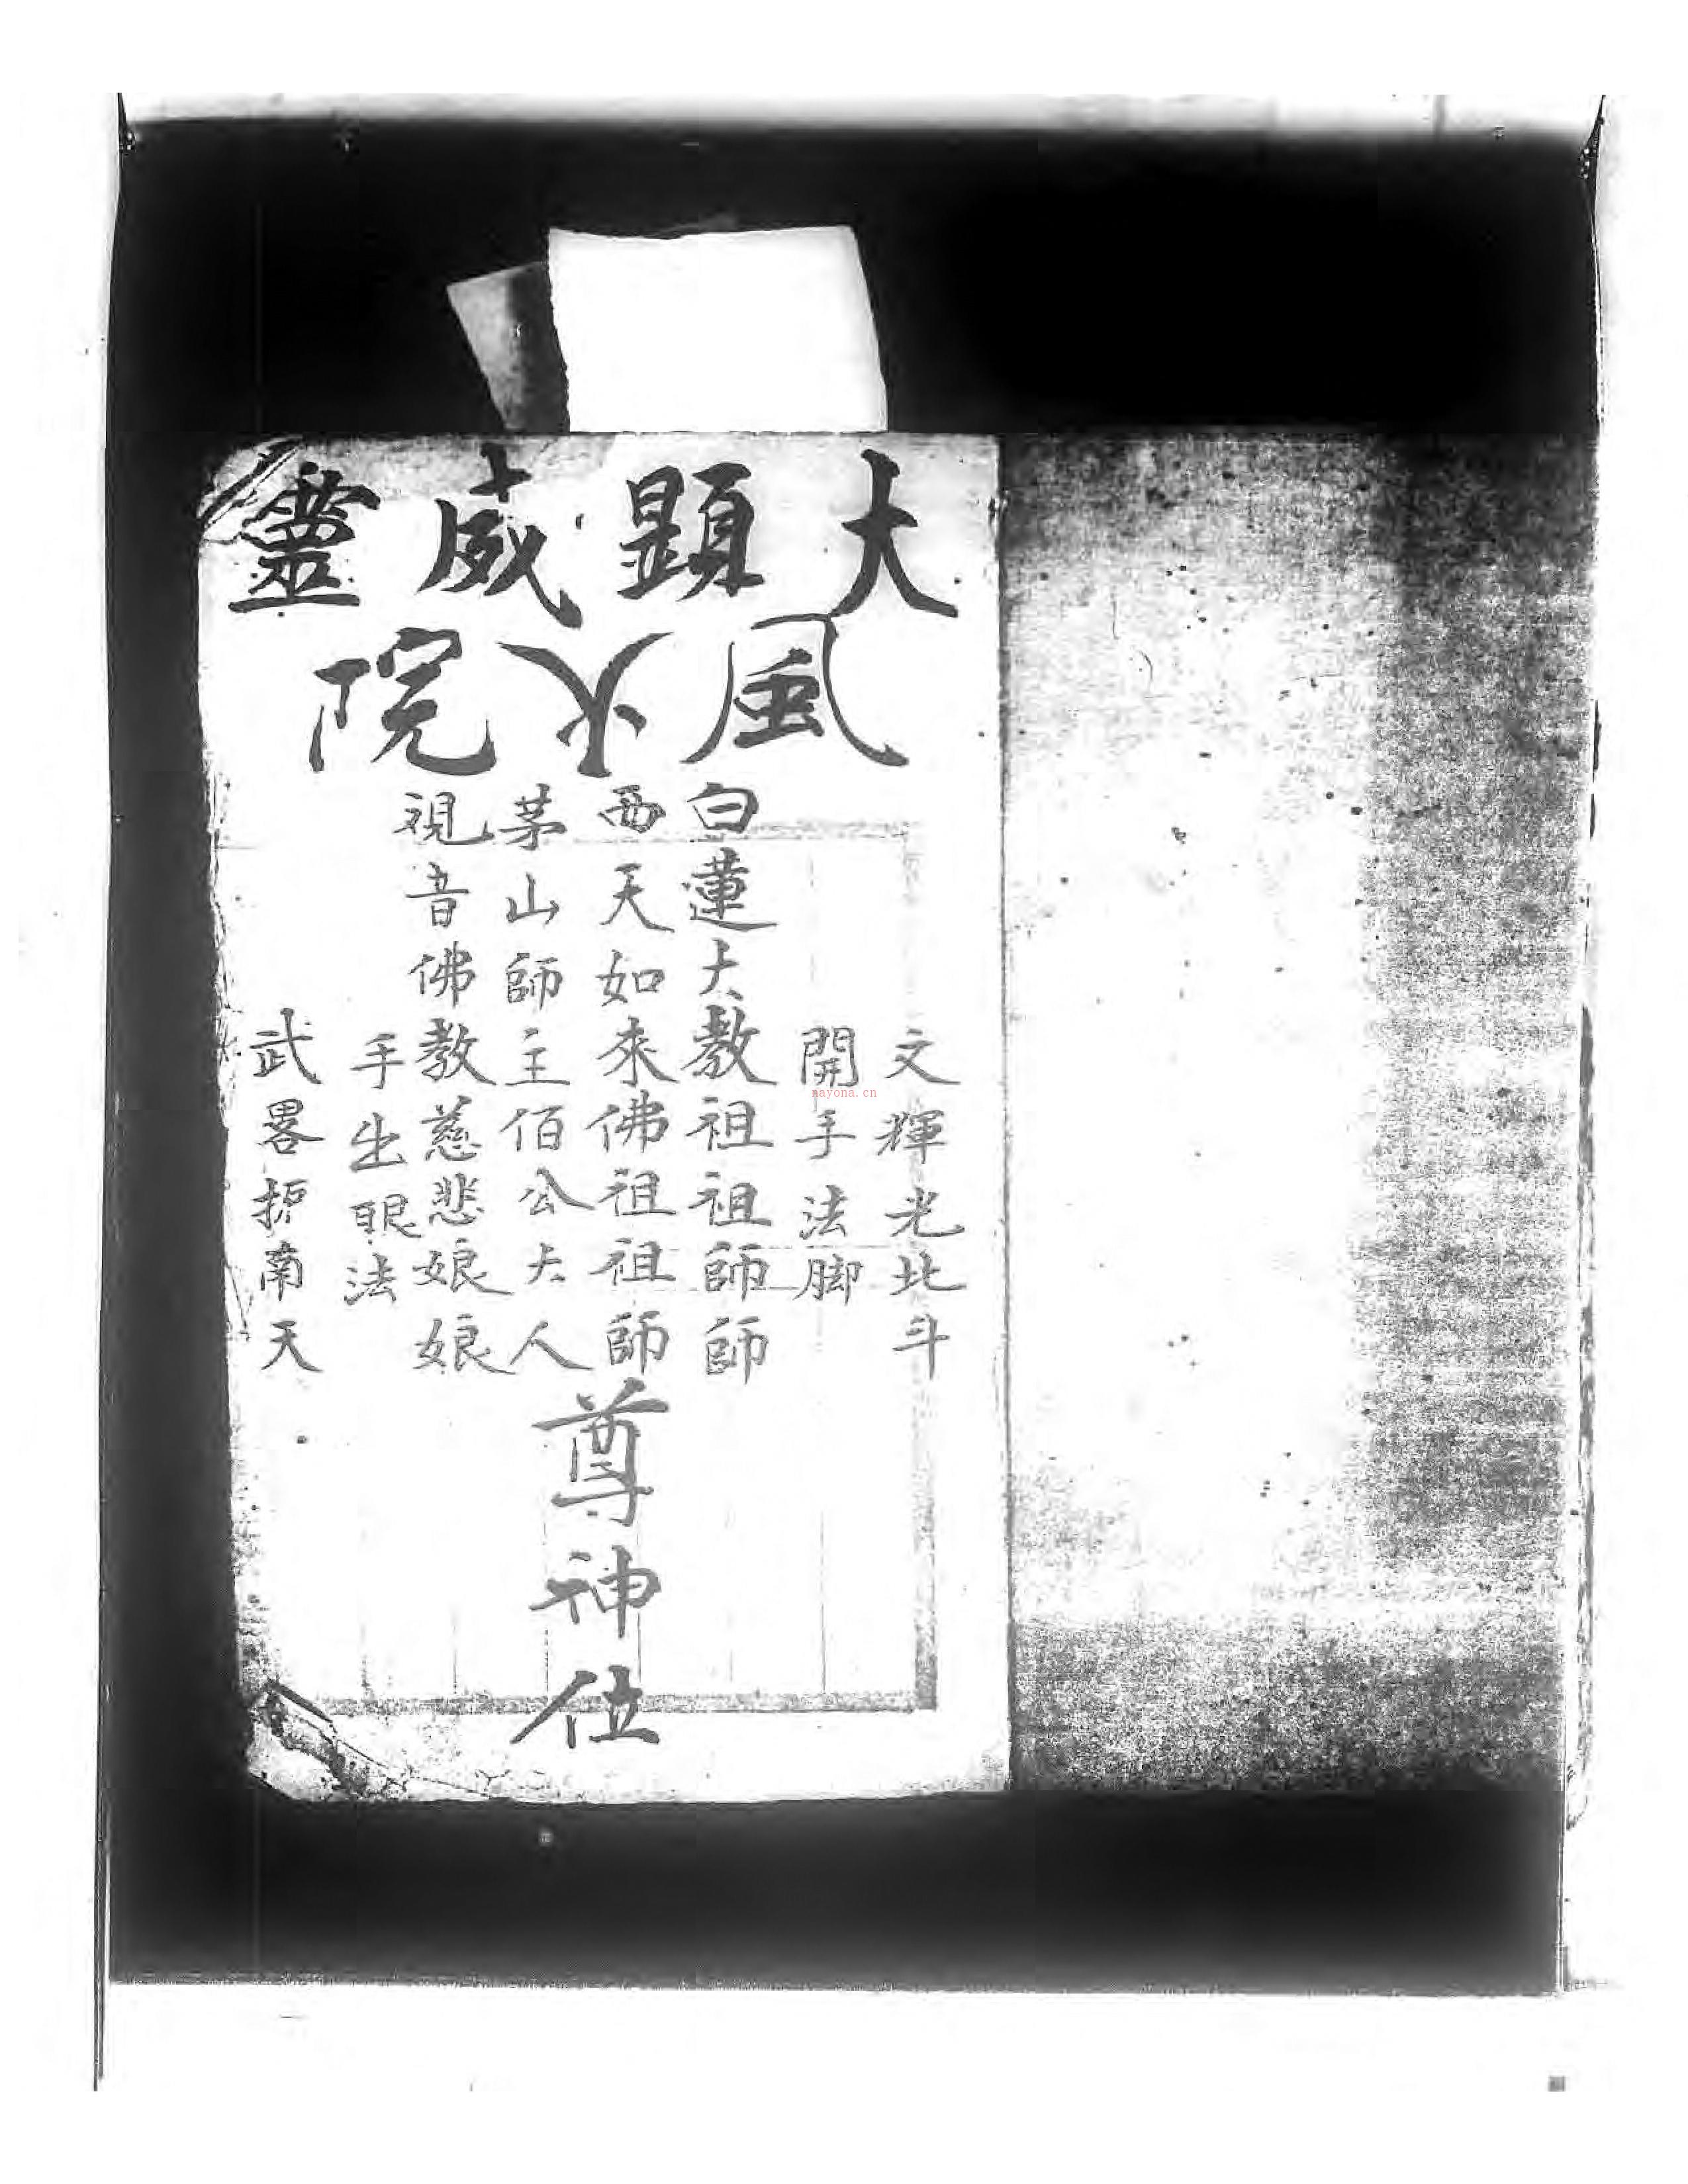 大顕威靈
風火院
文輝光北斗
開手法腳
白蓮大教祖祖師師
西天如來佛祖祖師
茅山師主佰公大人
視音佛教慈悲娘娘
手出眼法
武畧护南天
尊神位
nayona.cn